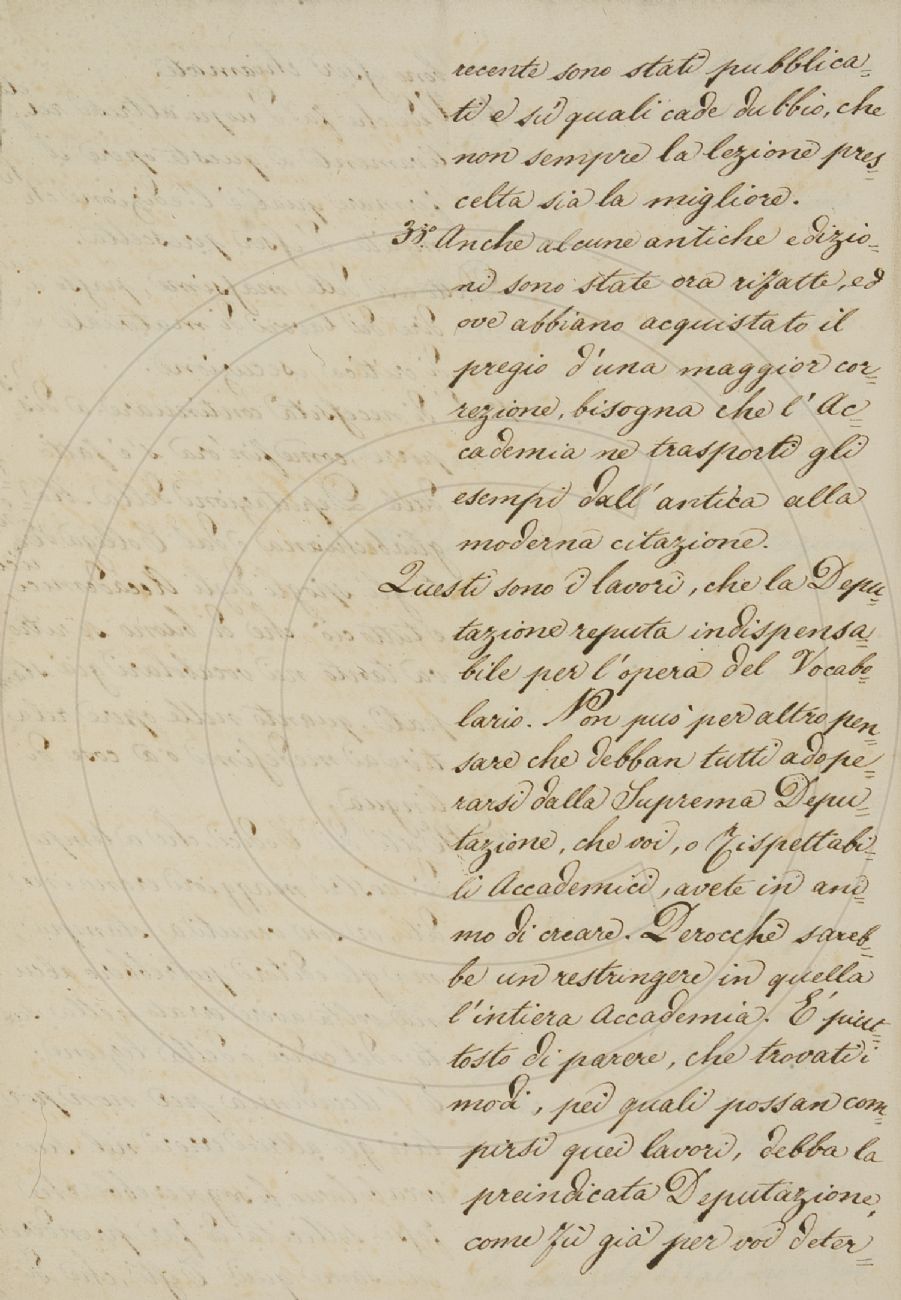 recente sono stati pubblica=
ti e sù quali cade dubbio, che
non sempre la lezione pres=
celta sia la migliore.
3.º Anche alcune antiche edizio=
ni sono state ora rifatte, ed
ove abbiano acquistato il
pregio d'una maggior cor=
rezione, bisogna che l'Ac=
cademia ne trasporti gli
esempi dall'antica alla
moderna citazione.
Questi sono i lavori, che la Depu=
tazione reputa indispensa=
bile per l'opera del Vocabo=
lario. Non può per altro pen=
sare che debban tutti adope=
rarsi dalla Suprema Depu=
tazione, che voi, o Rispettabi=
li Accademici, avete in ani=
mo di creare. Perocchè sareb=
be un restringere in quella
l'intiera Accademia. E' piut=
tosto di parere, che trovati i
modi, pei quali possan com=
pirsi quei lavori, debba la
preindicata Deputazione,
come fù già per voi deter=